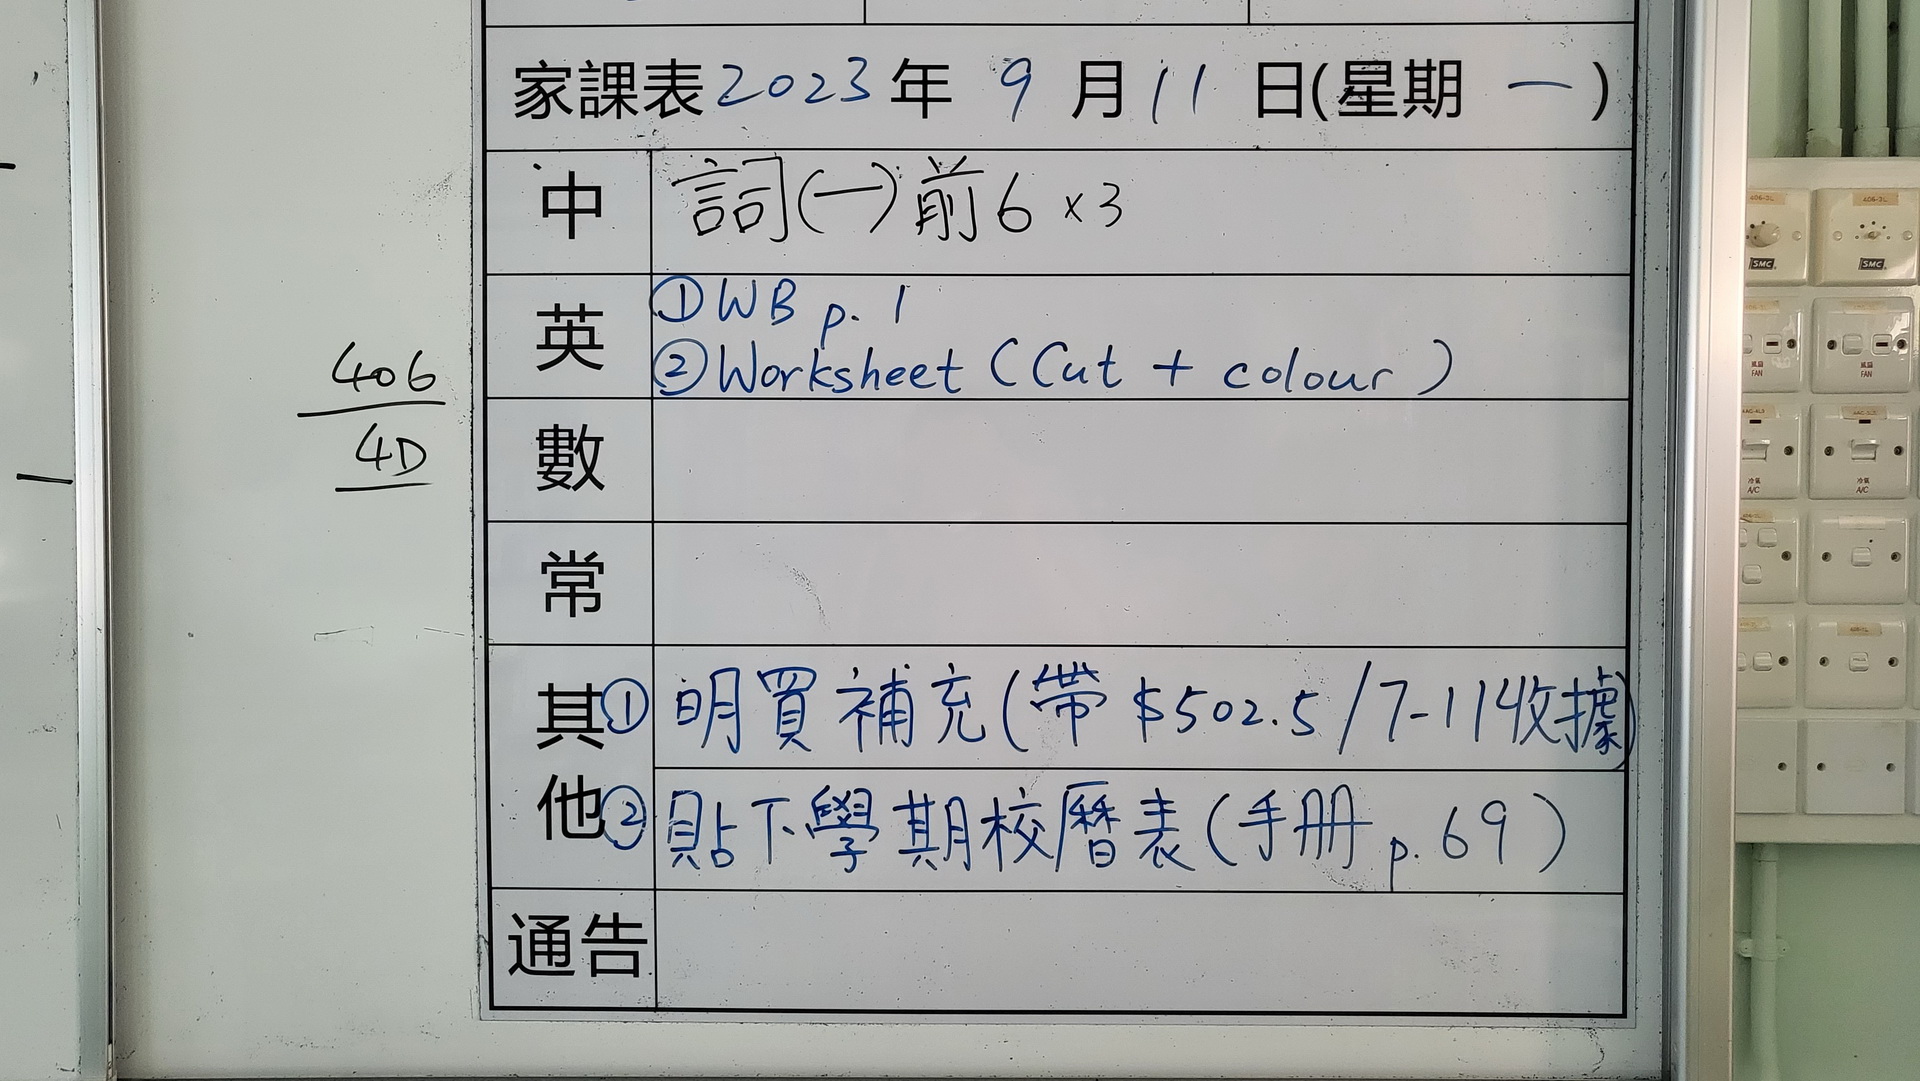 家課表2023年 9 月 11 日(星期 一 )
中 詞(一)前6 x3
英 ①WB p. 1
②Worksheet (Cut + colour )
數
常
其他 ① 明買補充(帶 $502.5/7-11收據)
② 貼下學期校曆表(手册 p. 69 )
通告
406
4D
406-2L
SMC
SMC
風扇
FAN
風扇
FAN
冷氣
A/C
冷氣
A/C